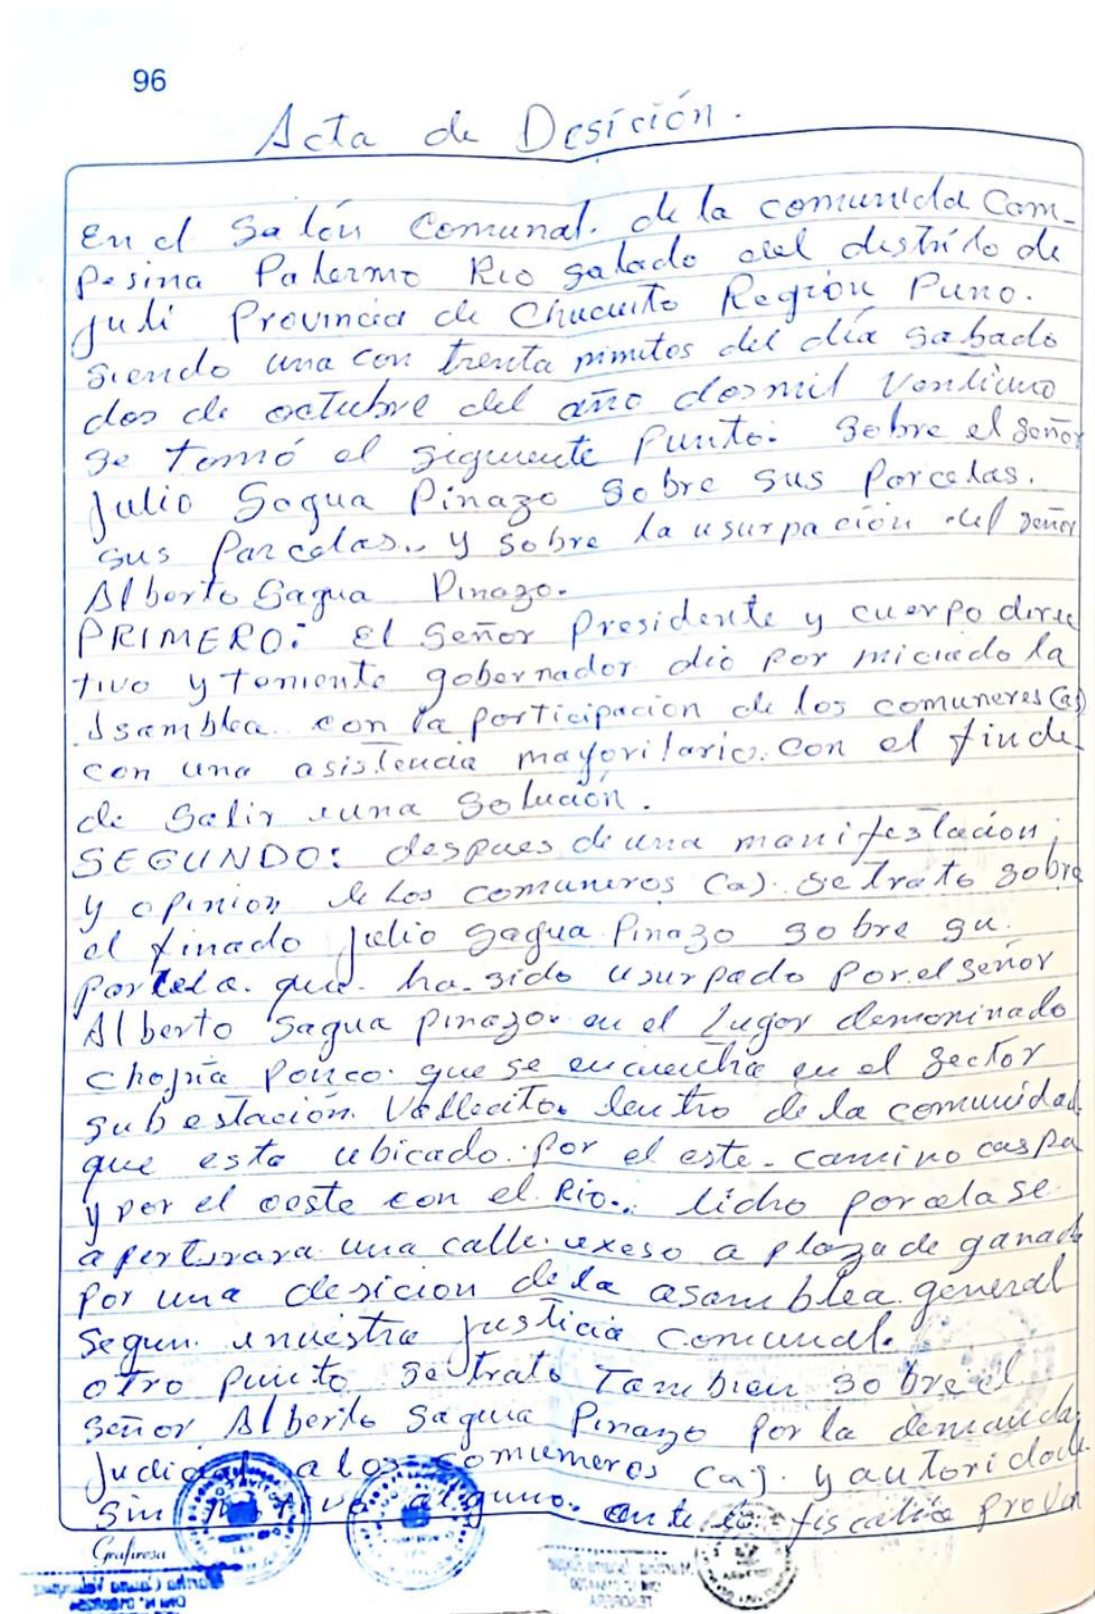 96
Acta de Desición.
En el Salón Comunal. de la comunidda Cam-
pesina Palermo Rio Salado del distrito de
Juli Provincia de Chucuito Región Puno.
Siendo una con trenta minutos del día Sabado
dos de octubre del año dosmil Ventiuno
se tomó el siguiente Punto: Sobre el Señor
Julio Sagua Pinazo Sobre sus Parcelas.
sus Parcelas.. y sobre la usurpación del señor
Alberto Sagua Pinazo.
PRIMERO: El Señor Presidente y cuerpo direc
tivo y teniente gobernador dio por iniciado la
Asamblea con la participación de los comuneros (as)
con una asistencia mayoritario. con el fin de
de Salir a una Solución.
SEGUNDO: despues de una manifestación;
y opinion de los comuneros (a). se trato sobre
el finado Julio Sagua Pinazo sobre su.
Parcela. que. ha sido usurpado Por el señor
Alberto Sagua Pinazo. en el Lugar demoninado
Chojña Ponco. que se encuentra en el Sector
Sub estación. Vallecito. dentro de la comunidad.
que esta ubicado. por el este - camino caspa
y por el oeste con el Rio.. dicho parcela se
aperturara una calle. exeso a plaza de ganado
Por una desicion de la asamblea general
Segun. a nuestra justicia comunal.
otro punto se trato Tambien sobre el
Señor. Alberto Sagua Pinazo por la demanda
Judicial a los comuneros (as). y autoridade
Sin motivo alguno. ante la fiscalia Provin
Grafinesa